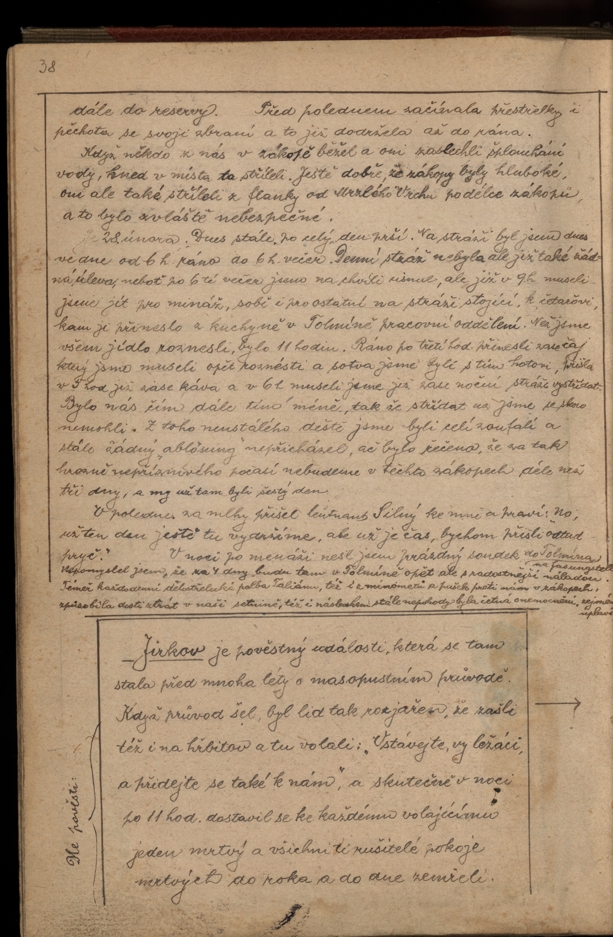 38
dále do reservy. Před polednem začínala přestřelky i
pěchota se svojí zbraní a to již dodržela až do rána.
Když někdo z nás v zákopě běžel a oni zaslechli šplouchání
vody, hned v místa ta stříleli. Ještě dobře, že zákopy byly hluboké,
oni ale také stříleli z flanky od Mrzlého Vrchu podélce zákopů,
a to bylo zvláště nebezpečné.
28. února. Dnes stále po celý den prší. Na stráži byl jsem dnes
ve dne od 6 h ráno do 6 h. večer. Denní stráž nebyla ale již také žád-
ná úleva, neboť po 6 té večer jsme na chvíli usnul, ale již v 9 h. museli
jsme jít pro mináž, sobě i pro ostatní na stráži stojící, k
kam ji přineslo z kuchyně v Tolmíně pracovní oddělení. Než jsme
všem jídlo roznesli, bylo 11 hodin. Ráno po třetí hod. přinesli zase čaj
který jsme museli opět roznésti a sotva jsme byli s tím hotovi, přišla
v 5 hod již zase káva a v 6 h museli jsme již zase noční stráže vystřídat.
Bylo nás čím dále tím méně, tak že střídat už jsme se skoro
nemohli. Z toho neustálého deště jsme byli celí zoufalí a
stále žádný „ablösung" nepřicházel, ač bylo řečeno, že za tak
hrozně nepříznivého počasí nebudeme v těchto zákopech déle než
tři dny, a my už tam byli šestý den.
V poledne za mlhy přišel leutnant Silený ke mně a praví: „No,
už ten den ještě tu vydržíme, ale už je čas, bychom přišli odtud
pryč." V noci po menáži nesl jsem prázdný soudek do Tolmína
na fasungstelle
Nepomyslel jsem, že za 4 dny budu tam v Tolmíně opět ale s radostnější náladou.
Téměř každodenní dělostřelecká palba Talianů, též i z minometů a pušek proti nám v zákopech,
způsobila dosti ztrát v naší setnině, též i následkem stále nepohody byla četná onemocnění, zejména
úplavicí
Ne pověsti:
Jirkov je pověstný událostí, která se tam
stala před mnoha léty o masopustním průvodě.
Když průvod šel, byl lid tak rozjařen, že zašli
též i na hřbitov a tu volali: „Vstávejte, vy ležáci,
a přidejte se také k nám", a skutečně v noci
po 11 hod. dostavil se ke každému volajícímu
jeden mrtvý a všichni ti rušitelé pokoje
mrtvých do roka a do dne zemřeli.